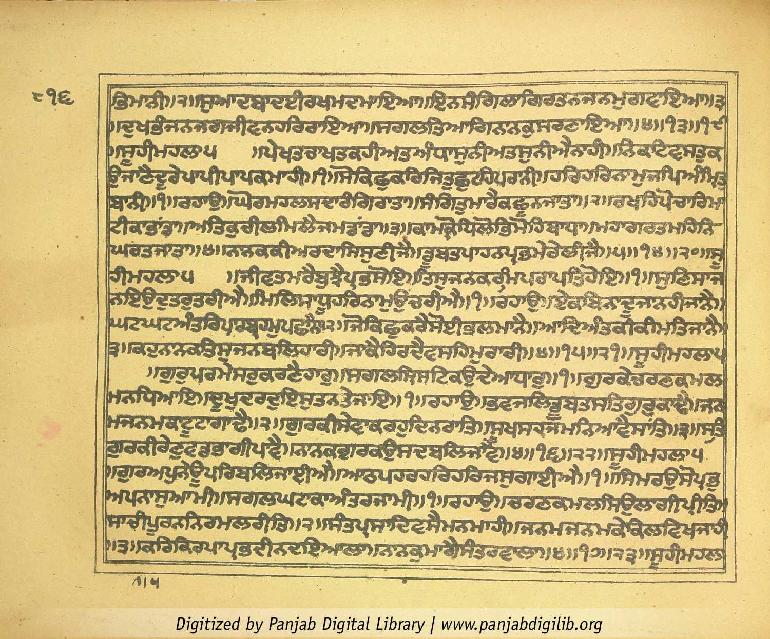 ੮੧੬
ਭਿਮਾਨੀ॥੨॥ਸੁਆਦਬਾਦਈਰਖਮਦਮਾਇਆ॥ਇਨਸੰਗਿਲਾਗਿਰਤਨਜਨਮੁਗਵਾਇਆ॥੩
॥ਦੁਖਭੰਜਨਜਗਜੀਵਨਹਰਿਰਾਇਆ॥ਸਗਲਤਿਆਗਿਨਾਨਕੁਸਰਣਾਇਆ॥੪॥੧੩॥੧੯
॥ਸੂਹੀਮਹਲਾ੫ ॥ਪੇਖਤਚਾਖਤਕਹੀਅਤਅੰਧਾਸੁਨੀਅਤਸੁਨੀਐਨਾਹੀ॥ਨਿਕਟਿਵਸਤੁਕ
ਉਜਾਣੈਦੂਰੇਪਾਪੀਪਾਪਕਮਾਹੀ॥੧॥ਸੋਕਿਛੁਕਰਿਜਿਤੁਛੁਟਹਿਪਰਾਨੀ॥ਹਰਿਹਰਿਨਾਮੁਜਪਿਅੰਮ੍ਰਿਤ
ਬਾਨੀ॥੧॥ਰਹਾਉ॥ਘੋਰਮਹਲਸਦਾਰੰਗਿਰਾਤਾ॥ਸੰਗਿਤੁਮਾਰੈਕਛੂਨਜਾਤਾ॥੨॥ਰਖਹਿਪੋਚਾਰਿਮਾ
ਟੀਕਾਭਾਂਡਾ॥ਅਤਿਕੁਚੀਲਮਿਲੈਜਮਡਾਂਡਾ॥੩॥ਕਾਮਕ੍ਰੋਧਿਲੋਭਿਮੋਹਿਬਾਧਾ॥ਮਹਾਗਰਤਮਹਿਨਿ
ਘਰਤਜਾਤਾ॥੪॥ਨਾਨਕਕੀਅਰਦਾਸਿਸੁਣੀਜੈ॥ਡੂਬਤਪਾਹਨਪ੍ਰਭਮੇਰੇਲੀਜੈ॥੫॥੧੪॥੨੦॥ਸੂ
ਹੀਮਹਲਾ੫ ॥ਜੀਵਤਮਰੈਬੁਝੈਪ੍ਰਭੁਸੋਇ॥ਤਿਸੁਜਨਕਰਮਿਪਰਾਪਤਿਹੋਇ॥੧॥ਸੁਣਿਸਾਜ
ਨਇਉਦੁਤਰੁਤਰੀਐ॥ਮਿਲਿਸਾਧੂਹਰਿਨਾਮੁਉਚਰੀਐ॥੧॥ਰਹਾਉ॥ਏਕਬਿਨਾਦੂਜਾਨਹੀਜਾਨੈ॥
ਘਟਘਟਅੰਤਰਿਪਾਰਬ੍ਰਹਮੁਪਛਾਨੈ॥੨॥ਜੋਕਿਛੁਕਰੈਸੋਈਭਲਮਾਨੈ॥ਆਦਿਅੰਤਕੀਕੀਮਤਿਜਾਨੈ॥
੩॥ਕਹੁਨਾਨਕਤਿਸੁਜਨਬਲਿਹਾਰੀ॥ਜਾਕੈਹਿਰਦੈਵਸਹਿਮੁਰਾਰੀ॥੪॥੧੫॥੨੧॥ਸੂਹੀਮਹਲਾ੫
॥ਗੁਰੁਪਰਮੇਸਰੁਕਰਣੈਹਾਰੁ॥ਸਗਲਸ੍ਰਿਸਟਿਕਉਦੇਆਧਾਰੁ॥੧॥ਗੁਰਕੇਚਰਣਕਮਲ
ਮਨਧਿਆਇ॥ਦੂਖੁਦਰਦੁਇਸੁਤਨਤੇਜਾਇ॥੧॥ਰਹਾਉ॥ਭਵਜਲਿਡੂਬਤਸਤਿਗੁਰੁਕਾਢੈ॥ਜਨ
ਮਜਨਮਕਾਟੂਟਾਗਾਢੈ॥੨॥ਗੁਰਕੀਸੇਵਾਕਰਹੁਦਿਨੁਰਾਤਿ॥ਸੂਖਸਹਜਮਨਿਆਵੈਸਾਂਤਿ॥੩॥ਸਤਿ
ਗੁਰਕੀਰੇਣੁਵਡਭਾਗੀਪਾਵੈ॥ਨਾਨਕਗੁਰਕਉਸਦਬਲਿਜਾਵੈ॥੪॥੧੬॥੨੨॥ਸੂਹੀਮਹਲਾ੫
॥ਗੁਰਅਪੁਨੇਊਪਰਿਬਲਿਜਾਈਐ॥ਆਠਪਹਰਹਰਿਹਰਿਜਸੁਗਾਈਐ॥੧॥ਸਿਮਰਉਸੋਪ੍ਰਭੁ
ਅਪਨਾਸੁਆਮੀ॥ਸਗਲਘਟਾਕਾਅੰਤਰਜਾਮੀ॥੧॥ਰਹਾਉ॥ਚਰਣਕਮਲਸਿਉਲਾਗੀਪ੍ਰੀਤਿ॥
ਸਾਚੀਪੂਰਨਨਿਰਮਲਰੀਤਿ॥੨॥ਸੰਤਪ੍ਰਸਾਦਿਵਸੈਮਨਮਾਹੀ॥ਜਨਮਜਨਮਕੇਕਿਲਵਿਖਜਾਹੀ
॥੩॥ਕਰਿਕਿਰਪਾਪ੍ਰਭਦੀਨਦਇਆਲਾ॥ਨਾਨਕੁਮਾਗੈਸੰਤਰਵਾਲਾ॥੪॥੧੭॥੨੩॥ਸੂਹੀਮਹਲਾ
Digitized by Panjab Digital Library | www.panjabdigilib.org